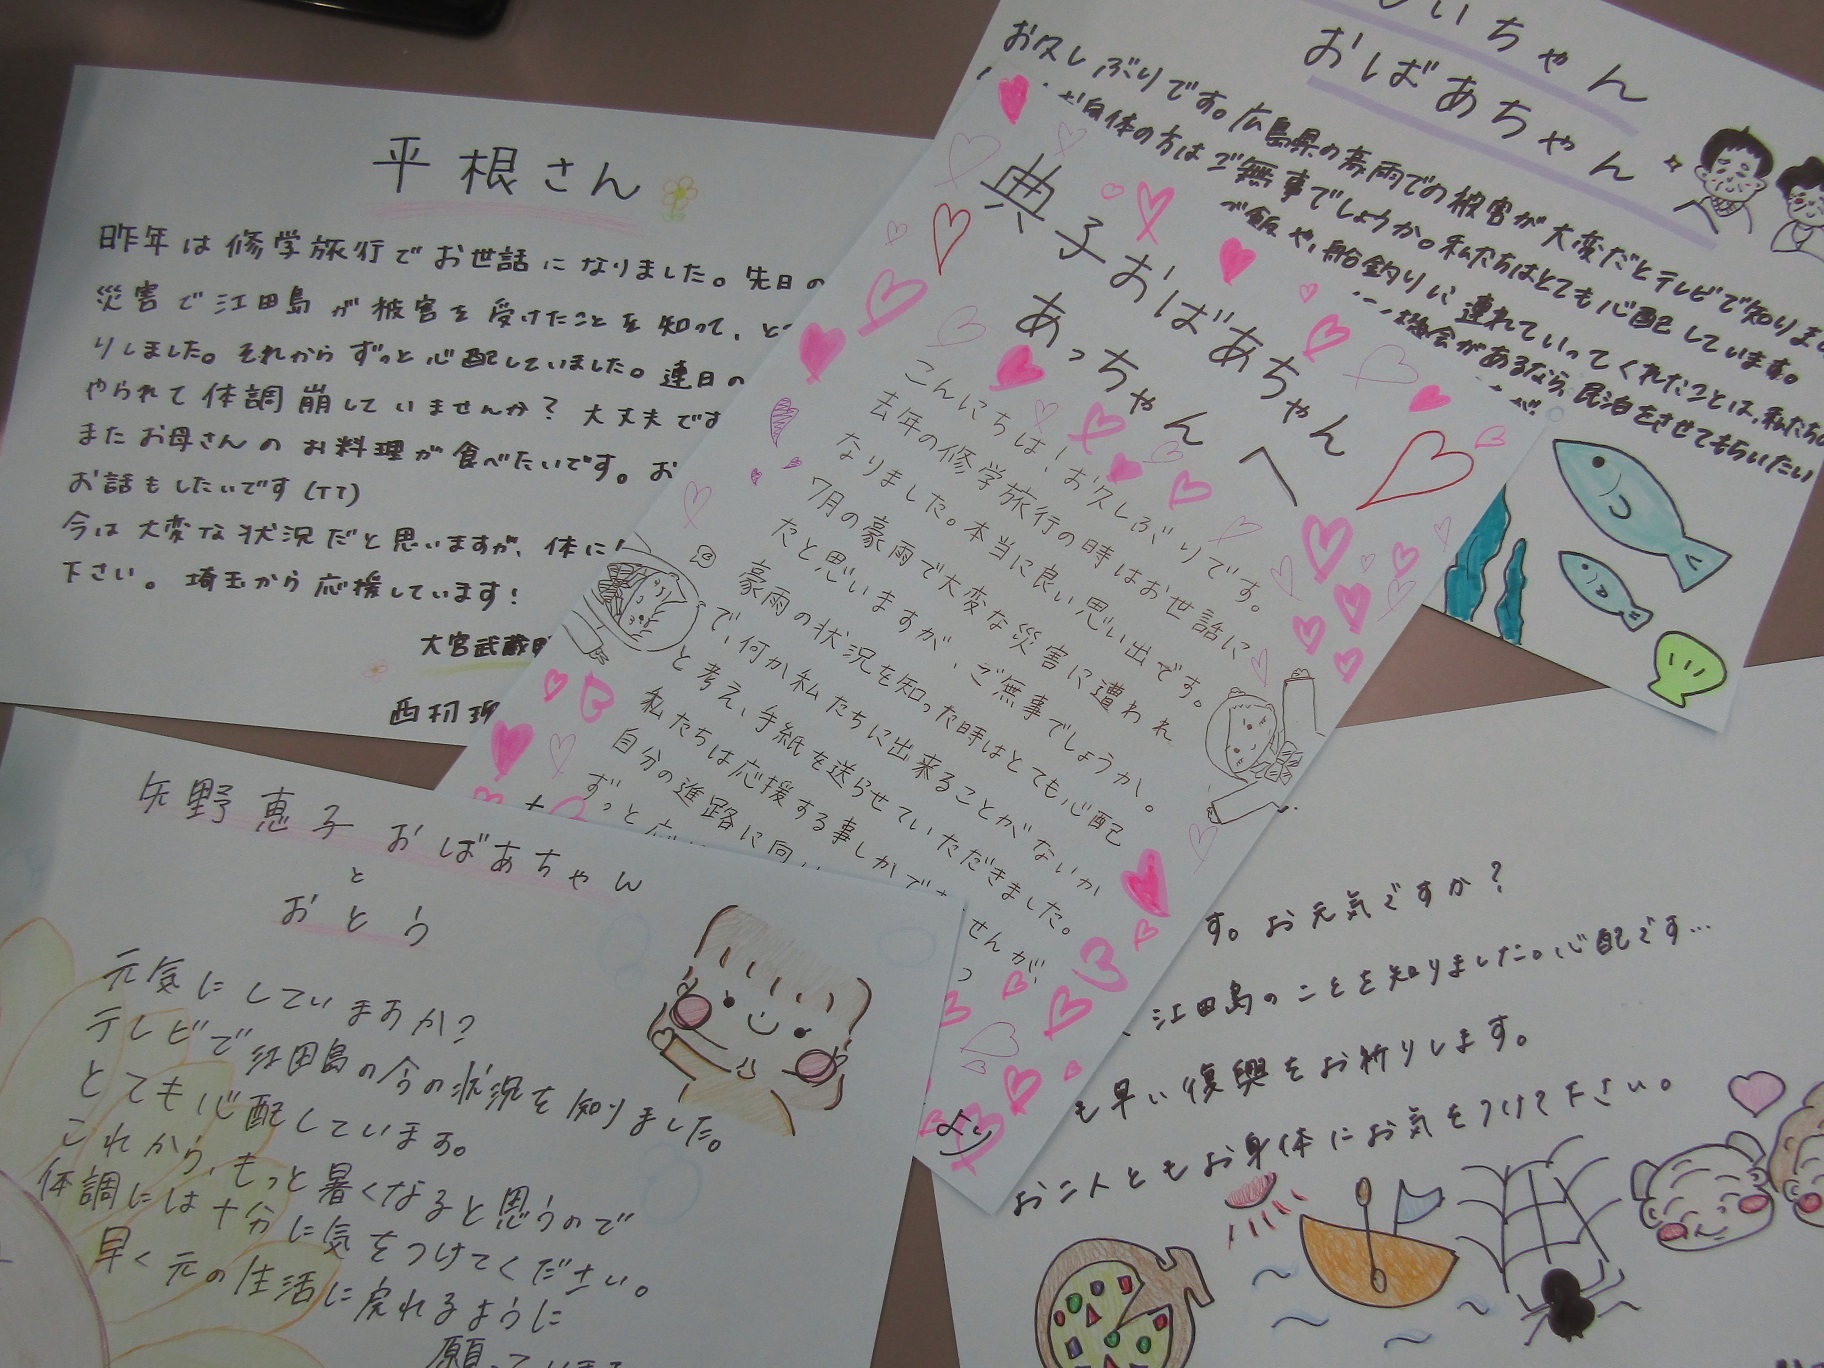 平根さん
昨年は修学旅行でお世話になりました。先日の
災害で江田島が被害を受けたことを知って、
りしました。それからずっと心配していました。連日の
やられて体調崩していませんか?大丈夫です
またお母さんのお料理が食べたいです。お
お話もしたいです(TT)
今は大変な状況だと思いますが、体に
下さい。埼玉から応援しています!
大宮武蔵野
いちゃん
おばあちゃん
お久しぶりです。広島県の豪雨での被害が大変だとテレビで知りまし
自体の方はご無事でしょうか。私たちはとても心配しています。
ご飯や、船釣りに連れていってくれたことは、私たちの
機会があるなら、民泊をさせてもらいたい
典子おばあちゃん
あっちゃんへ
こんにちは!お久しぶりです。
去年の修学旅行の時はお世話に
なりました。本当に良い思い出です。
7月の豪雨で大変な災害に遭われ
たと思いますが、ご無事でしょうか。
豪雨の状況を知った時はとても心配
で、何か私たちに出来ることがないか
と考え、手紙を送らせていただきました。
私たちは応援する事しかできませんが、
自分の進路に向
ずっと応
より
矢野恵子おばあちゃん
と
おとう
元気にしていますか?
テレビで江田島の今の状況を知りました。
とても心配しています。
これから、もっと暑くなると思うので
体調には十分に気をつけてください。
早く元の生活に戻れるように
願っています
す。お元気ですか?
、江田島のことを知りました。心配です…
も早い復興をお祈りします。
お二人ともお身体にお気をつけて下さい。